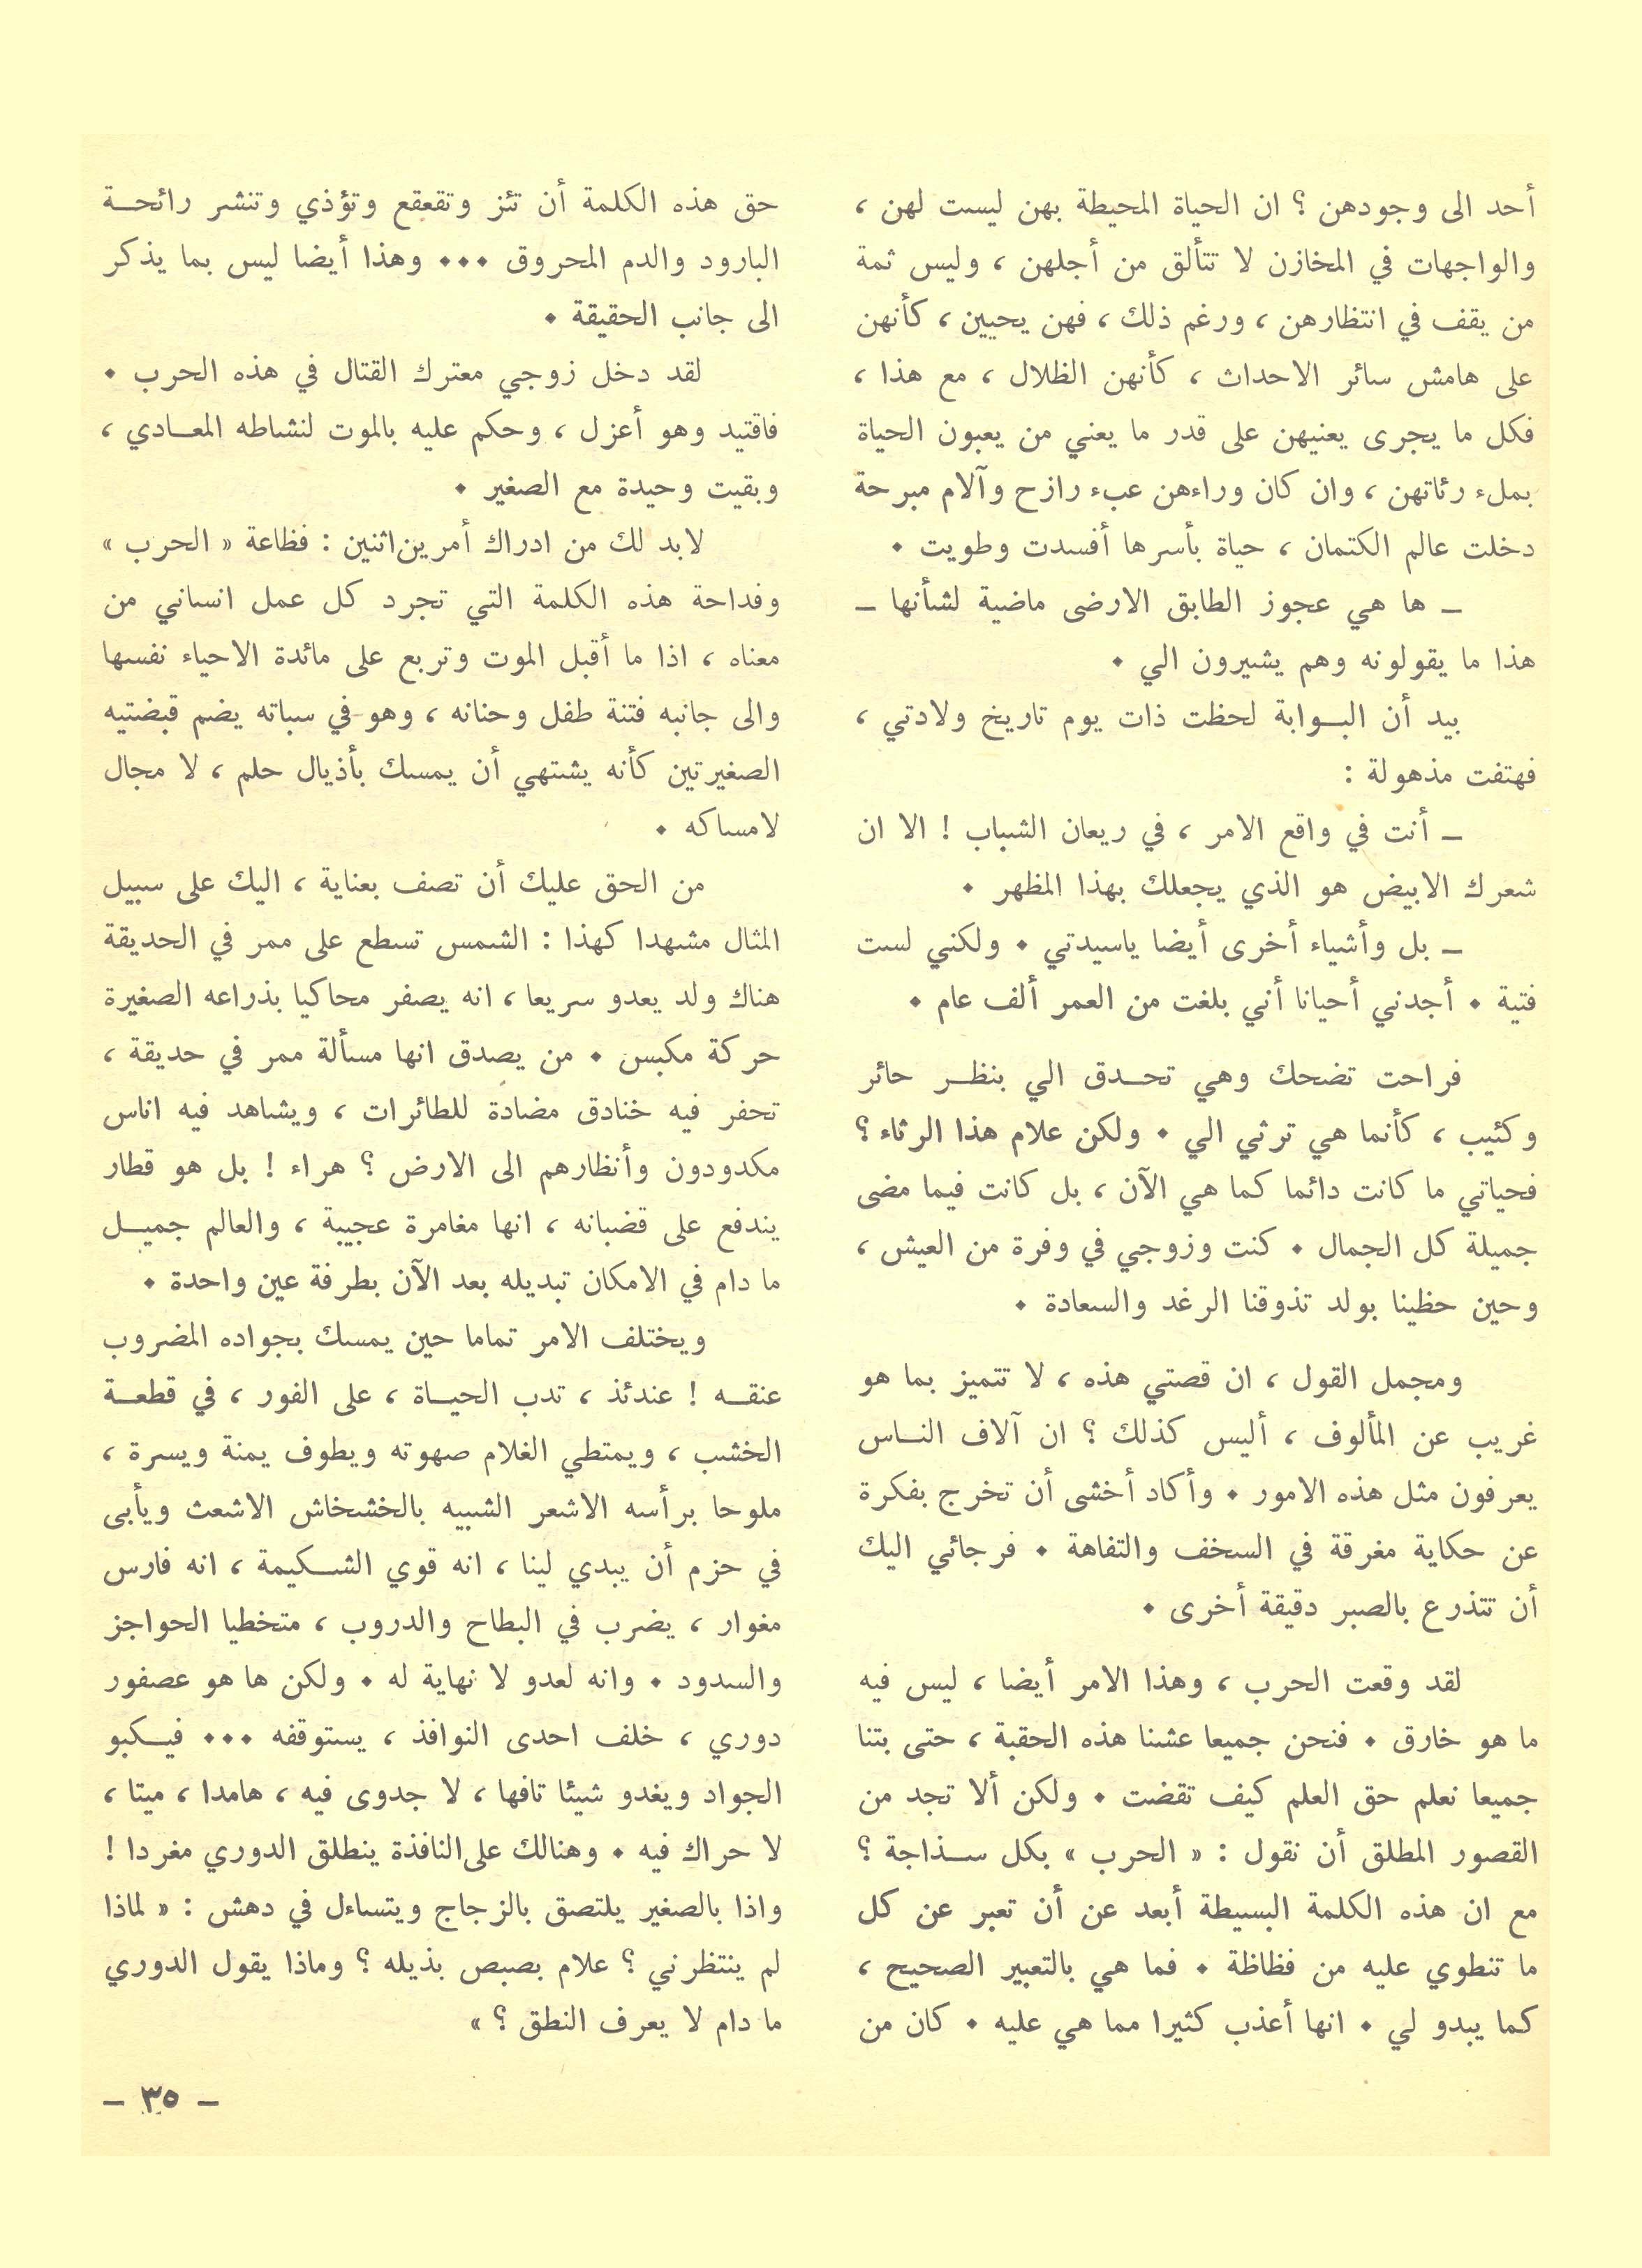 أحد الى وجودهن ؟ ان الحياة المحيطة بهن ليست لهن ،
والواجهات في المخازن لا تتألق من أجلهن ، وليس ثمة
من يقف في انتظارهن ، ورغم ذلك ، فهن يحيين ، كأنهن
على هامش سائر الاحداث ، كأنهن الظلال ، مع هذا ،
فكل ما يجرى يعنيهن على قدر ما يعني من يعبون الحياة
بملء رئاتهن ، وان كان وراءهن عبء رازح وآلام مبرحة
دخلت عالم الكتمان ، حياة بأسرها أفسدت وطويت ٠
ـ ها هي عجوز الطابق الارضى ماضية لشأنها ـ
هذا ما يقولونه وهم يشيرون الي ٠
بيد أن البوابة لحظت ذات يوم تاريخ ولادتي ،
فهتفت مذهولة :
ـ أنت في واقع الامر ، في ريعان الشباب ! الا ان
شعرك الابيض هو الذي يجعلك بهذا المظهر ٠
ـ بل وأشياء أخرى أيضا ياسيدتي ٠ ولكني لست
فتية ٠ أجدني أحيانا أني بلغت من العمر ألف عام ٠
فراحت تضحك وهي تحدق الي بنظر حائر
وكئيب ، كأنما هي ترثي الي ٠ ولكن علام هذا الرثاء ؟
فحياتي ما كانت دائما كما هي الآن ، بل كانت فيما مضى
جميلة كل الجمال ٠ كنت وزوجي في وفرة من العيش ،
وحين حظينا بولد تذوقنا الرغد والسعادة ٠
ومجمل القول ، ان قصتي هذه ، لا تتميز بما هو
غريب عن المألوف ، أليس كذلك ؟ ان آلاف الناس
يعرفون مثل هذه الامور ٠ وأكاد أخشى أن تخرج بفكرة
عن حكاية مغرقة في السخف والتفاهة ٠ فرجائي اليك
أن تتذرع بالصبر دقيقة أخرى ٠
لقد وقعت الحرب ، وهذا الامر أيضا ، ليس فيه
ما هو خارق ٠ فنحن جميعا عشنا هذه الحقبة ، حتى بتنا
جميعا نعلم حق العلم كيف تقضت ٠ ولكن ألا تجد من
القصور المطلق أن نقول : « الحرب » بكل سذاجة ؟
مع ان هذه الكلمة البسيطة أبعد عن أن تعبر عن كل
ما تنطوي عليه من فظاظة ٠ فما هي بالتعبير الصحيح ،
كما يبدو لي ٠ انها أعذب كثيرا مما هي عليه ٠ كان من
حق هذه الكلمة أن تئز وتقعقع وتؤذي وتنشر رائحة
البارود والدم المحروق ٠٠٠ وهذا أيضا ليس بما يذكر
الى جانب الحقيقة ٠
لقد دخل زوجي معترك القتال في هذه الحرب ٠
فاقتيد وهو أعزل ، وحكم عليه بالموت لنشاطه المعادي ،
وبقيت وحيدة مع الصغير ٠
لابد لك من ادراك أمرين اثنين : فظاعة « الحرب »
وفداحة هذه الكلمة التي تجرد كل عمل انساني من
معناه ، اذا ما أقبل الموت وتربع على مائدة الاحياء نفسها
والى جانبه فتنة طفل وحنانه ، وهو في سباته يضم قبضتيه
الصغيرتين كأنه يشتهي أن يمسك بأذيال حلم ، لا مجال
لامساكه ٠
من الحق عليك أن تصف بعناية ، اليك على سبيل
المثال مشهدا كهذا : الشمس تسطع على ممر في الحديقة
هناك ولد يعدو سريعا ، انه يصفر محاكيا بذراعه الصغيرة
حركة مكبس ٠ من يصدق انها مسألة ممر في حديقة ،
تحفر فيه خنادق مضادة للطائرات ، ويشاهد فيه اناس
مكدودون وأنظارهم الى الارض ؟ هراء ! بل هو قطار
يندفع على قضبانه ، انها مغامرة عجيبة ، والعالم جميل
ما دام في الامكان تبديله بعد الآن بطرفة عين واحدة ٠
ويختلف الامر تماما حين يمسك بجواده المضروب
عنقه ! عندئذ ، تدب الحياة ، على الفور ، في قطعة
الخشب ، ويمتطي الغلام صهوته ويطوف يمنة ويسرة ،
ملوحا برأسه الاشعر الشبيه بالخشخاش الاشعث ويأبى
في حزم أن يبدي لينا ، انه قوي الشكيمة ، انه فارس
مغوار ، يضرب في البطاح والدروب ، متخطيا الحواجز
والسدود ٠ وانه لعدو لا نهاية له ٠ ولكن ها هو عصفور
دوري ، خلف احدى النوافذ ، يستوقفه ٠٠٠ فيكبو
الجواد ويغدو شيئا تافها ، لا جدوى فيه ، هامدا ، ميتا ،
لا حراك فيه ٠ وهنالك على النافذة ينطلق الدوري مغردا !
واذا بالصغير يلتصق بالزجاج ويتساءل في دهش : « لماذا
لم ينتظرني ؟ علام بصبص بذيله ؟ وماذا يقول الدوري
ما دام لا يعرف النطق ؟ »
ـ ٣٥ ـ